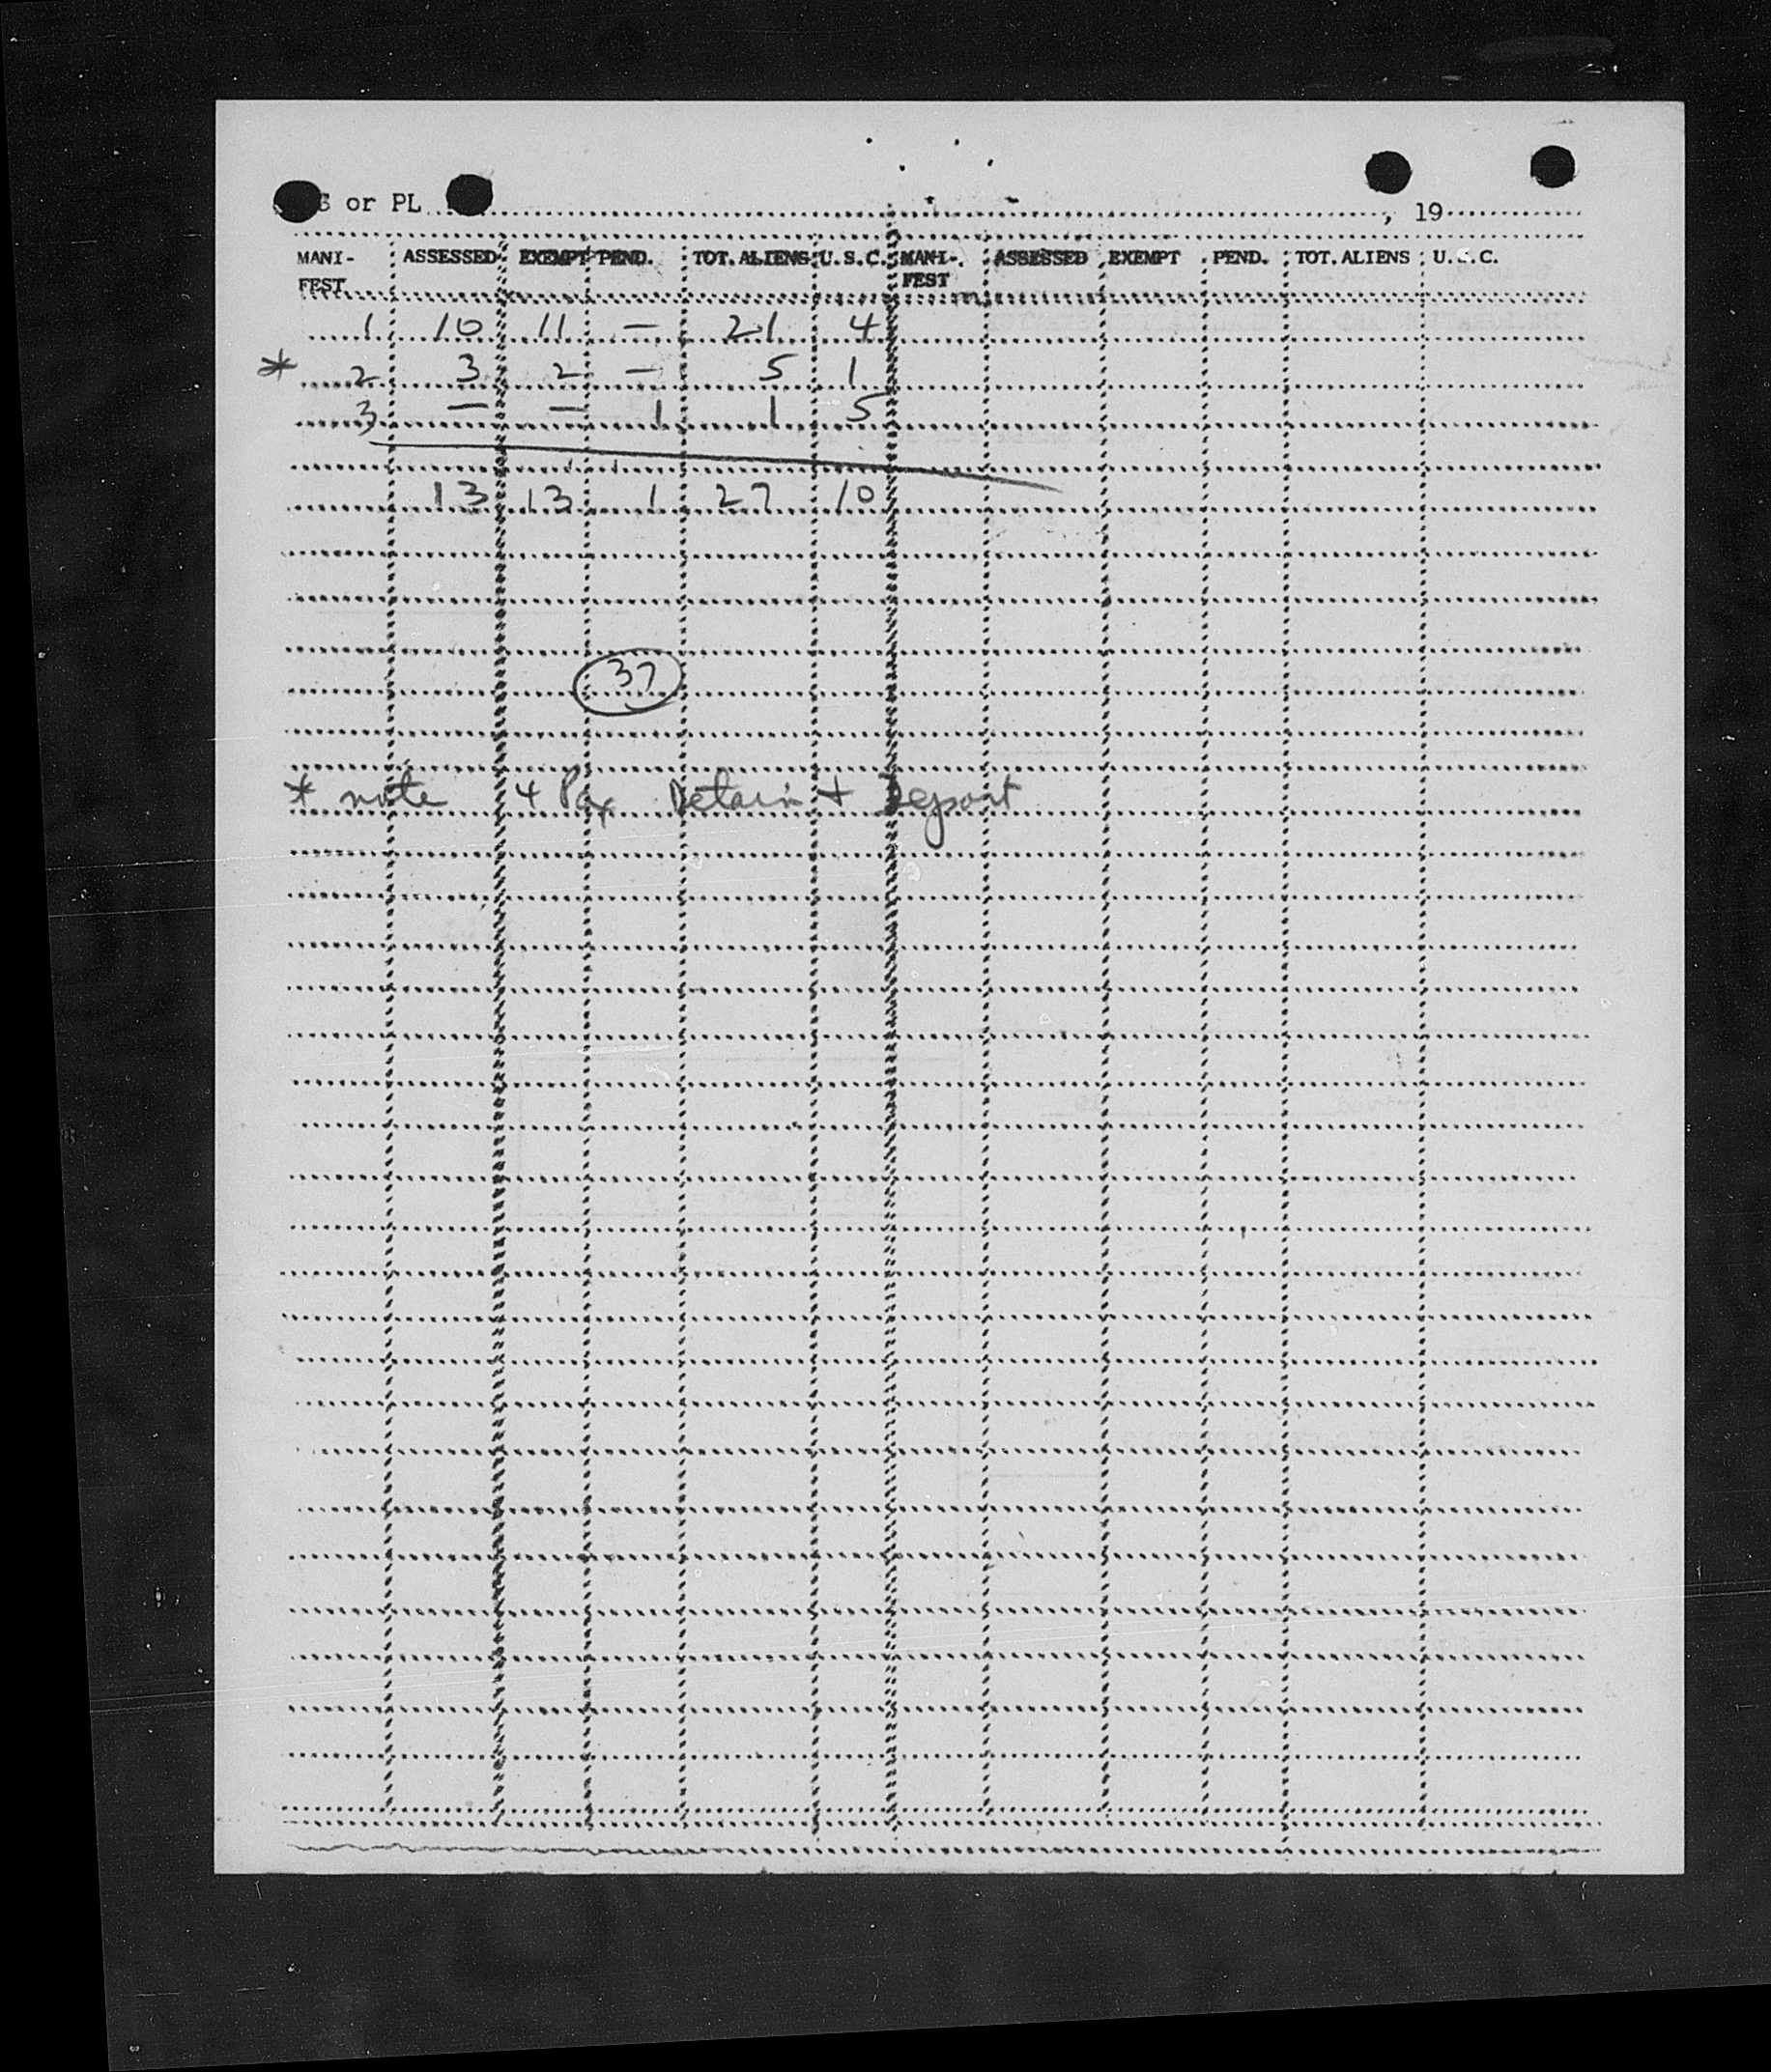 S or PL , 19
MANI- ASSESSED EXEMPT PEND. TOT. ALIENS U.S.C. MANI- ASSESSED EXEMPT PEND. TOT. ALIENS U.S.C.
FEST FEST
1 10 11 — 21 4
* 2 3 2 — 5 1
3 — — 1 1 5
13 13 1 27 10
37
* note 4 Pax Detain + Deport